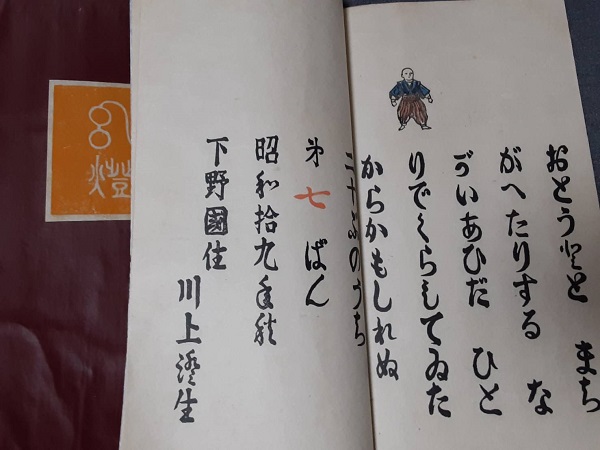 おとうとと まち
がへたりする な
がいあひだ ひと
りでくらしてゐた
からかもしれぬ
三十ぶのうち
第七ばん
昭和拾九年秋
下野國住
川上澄生